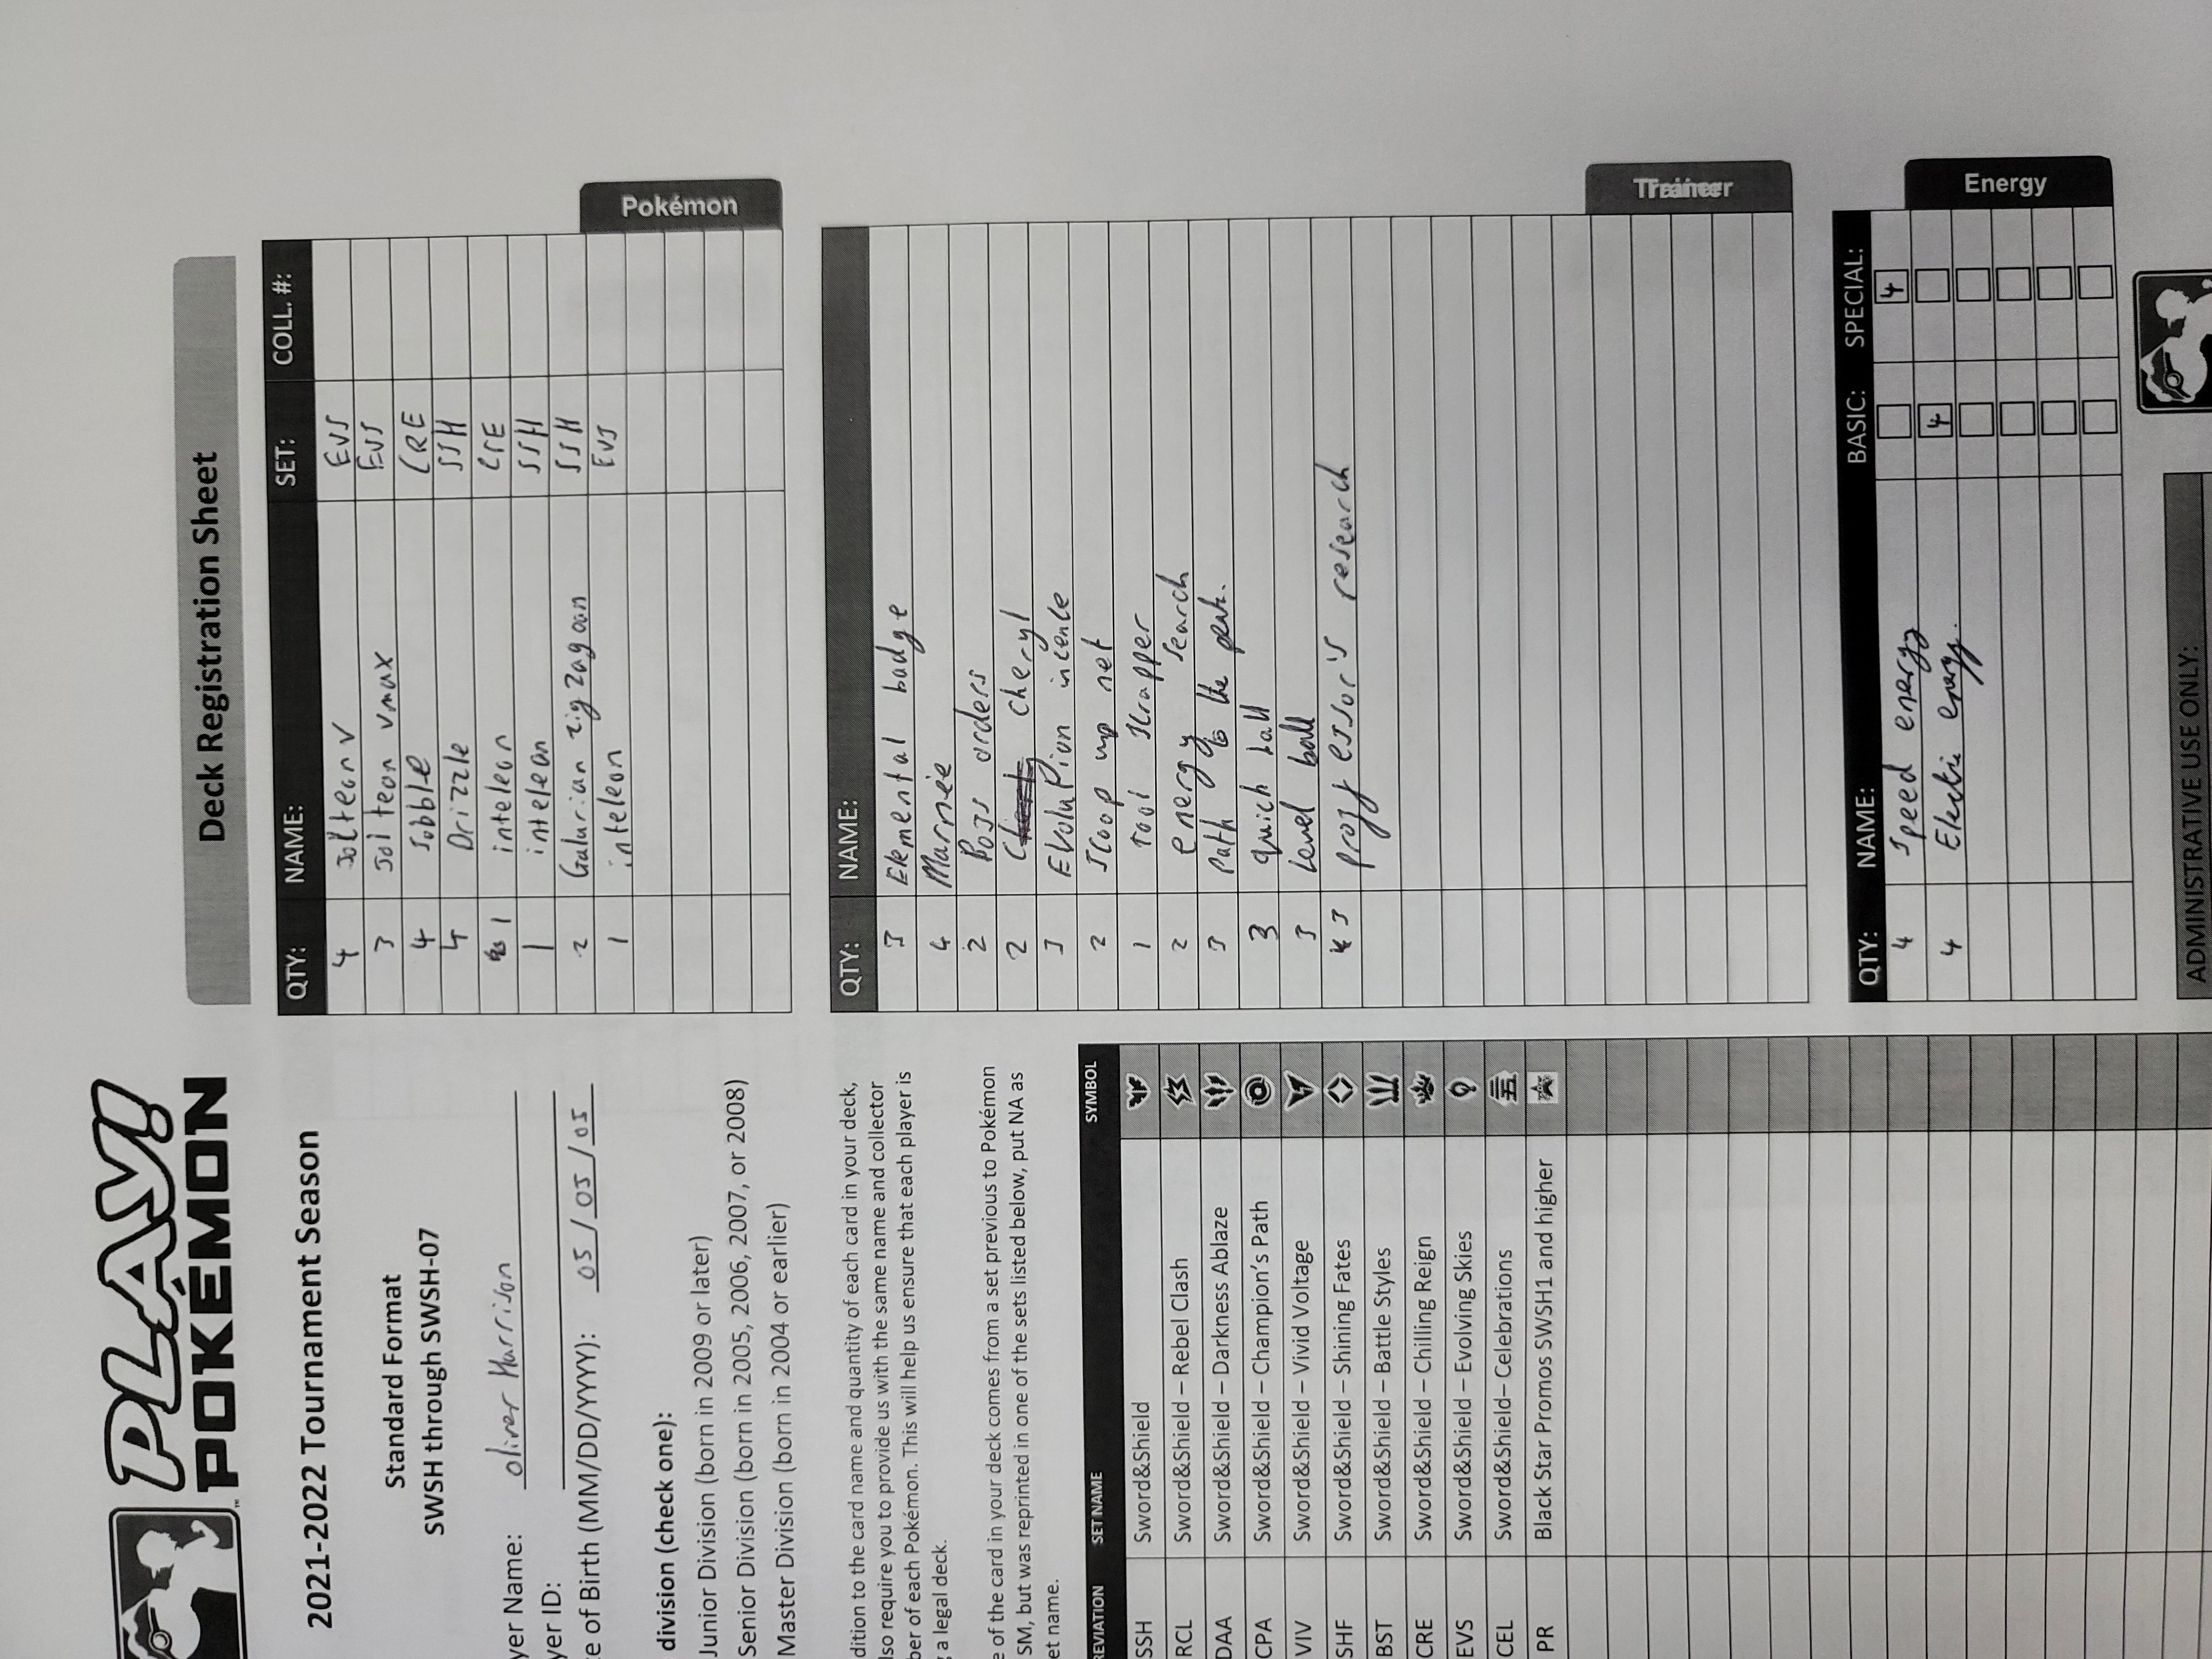 PLAY!
POKÉMON
2021-2022 Tournament Season
Standard Format
SWSH through SWSH-07
yer Name: oliver Harrison
yer ID:
e of Birth (MM/DD/YYYY): 05 / 05 / 05
division (check one):
Junior Division (born in 2009 or later)
Senior Division (born in 2005, 2006, 2007, or 2008)
Master Division (born in 2004 or earlier)
dition to the card name and quantity of each card in your deck,
lso require you to provide us with the same name and collector
ber of each Pokémon. This will help us ensure that each player is
g a legal deck.
e of the card in your deck comes from a set previous to Pokémon
SM, but was reprinted in one of the sets listed below, put NA as
et name.
REVIATION SET NAME SYMBOL
SSH Sword&Shield
RCL Sword&Shield – Rebel Clash
DAA Sword&Shield – Darkness Ablaze
CPA Sword&Shield – Champion's Path
VIV Sword&Shield – Vivid Voltage
SHF Sword&Shield – Shining Fates
BST Sword&Shield – Battle Styles
CRE Sword&Shield – Chilling Reign
EVS Sword&Shield – Evolving Skies
CEL Sword&Shield– Celebrations
PR Black Star Promos SWSH1 and higher
Deck Registration Sheet
QTY: NAME: SET: COLL. #:
4 Jolteon V EVS
3 Jolteon vmax EVS
4 Sobble CRE
4 Drizzle SSH
1 inteleon CrE
1 inteleon SSH
2 Galurian zigzagoon SSH
1 inteleon EVS
Pokémon
QTY: NAME:
3 Elemental badge
4 Marnie
2 Boss orders
2 cheryl
3 Evolution incence
2 Scoop up net
1 tool Scrapper
2 energy search
3 Path to the peak.
3 quick ball
3 Level ball
3 proffessor's research
Trainer
QTY: NAME: BASIC: SPECIAL:
4 Speed energy 4
4 Electric energy. 4
Energy
ADMINISTRATIVE USE ONLY: